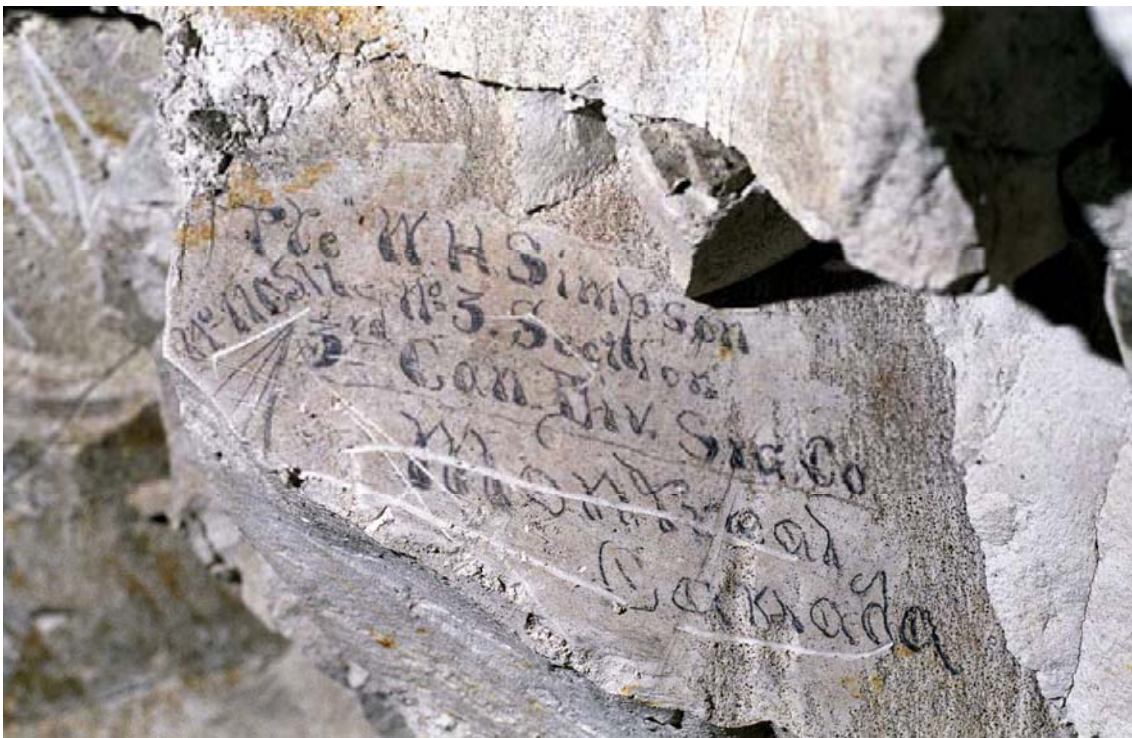 Pte W.H. Simpson
No. 3. Section
3rd Can. Div. Sig. Co
Montreal
Canada